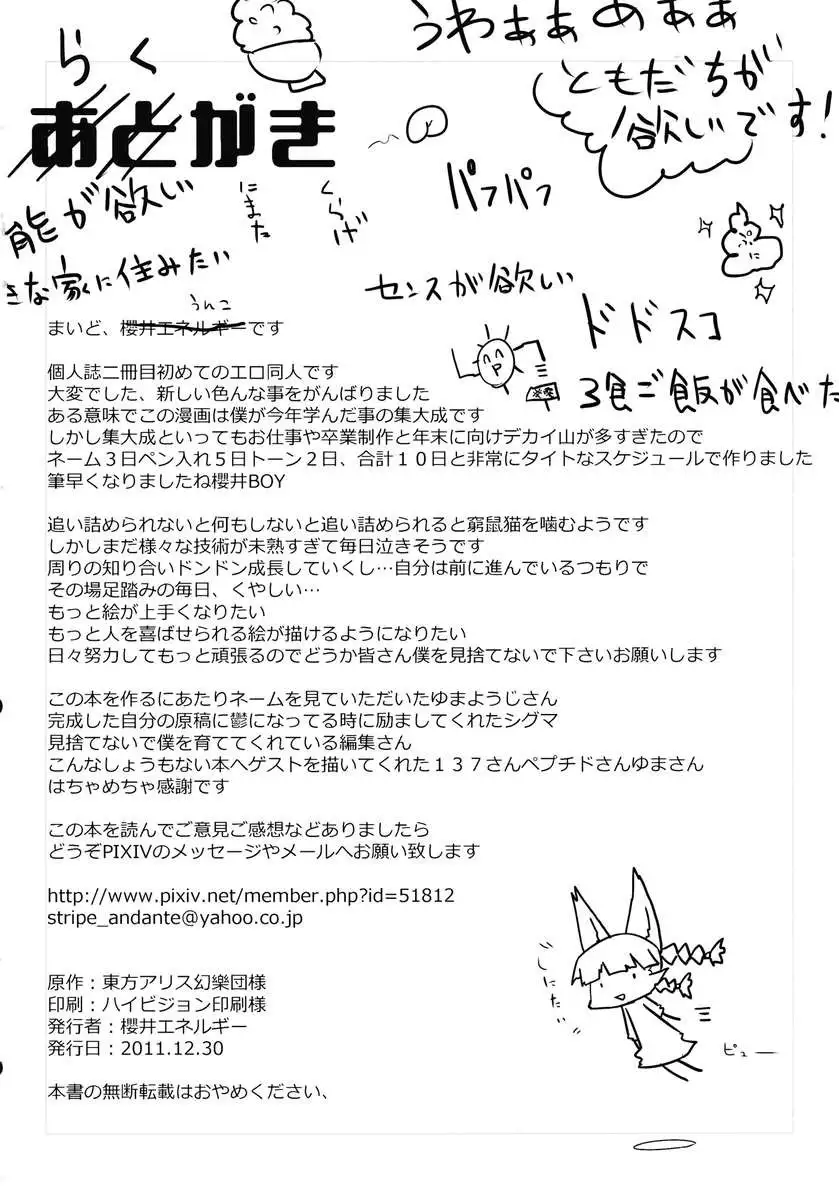 うわぁぁめぁぁ
らく
ともだちが
欲しいです!
あとがき
能が欲しい
にまた
くらげ
パフパフ
きな家に住みたい
センスが欲しい
うんこ
まいど、櫻井エネルギーです
ドドスコ
3食ご飯が食べた
個人誌二冊目初めてのエロ同人です
大変でした、新しい色んな事をがんばりました
ある意味でこの漫画は僕が今年学んだ事の集大成です
しかし集大成といってもお仕事や卒業制作と年末に向けデカイ山が多すぎたので
ネーム3日ペン入れ5日トーン2日、合計10日と非常にタイトなスケジュールで作りました
筆早くなりましたね櫻井BOY
追い詰められないと何もしないと追い詰められると窮鼠猫を噛むようです
しかしまだ様々な技術が未熟すぎて毎日泣きそうです
周りの知り合いドンドン成長していくし…自分は前に進んでいるつもりで
その場足踏みの毎日、くやしい…
もっと絵が上手くなりたい
もっと人を喜ばせられる絵が描けるようになりたい
日々努力してもっと頑張るのでどうか皆さん僕を見捨てないで下さいお願いします
この本を作るにあたりネームを見ていただいたゆまようじさん
完成した自分の原稿に鬱になってる時に励ましてくれたシグマ
見捨てないで僕を育ててくれている編集さん
こんなしょうもない本へゲストを描いてくれた137さんペプチドさんゆまさん
はちゃめちゃ感謝です
この本を読んでご意見ご感想などありましたら
どうぞPIXIVのメッセージやメールへお願い致します
http://www.pixiv.net/member.php?id=51812
stripe_andante@yahoo.co.jp
じにたい
原作：東方アリス幻樂団様
印刷：ハイビジョン印刷様
発行者：櫻井エネルギー
発行日：2011.12.30
ピュー
本書の無断転載はおやめください、